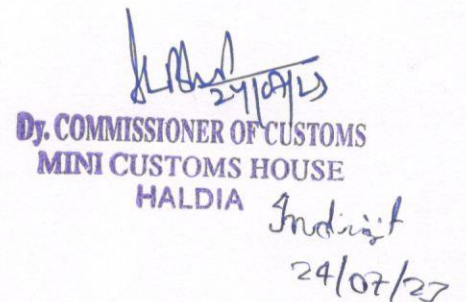 24/07/23
Dy. COMMISSIONER OF CUSTOMS
MINI CUSTOMS HOUSE
HALDIA
Indrajit
24/07/23